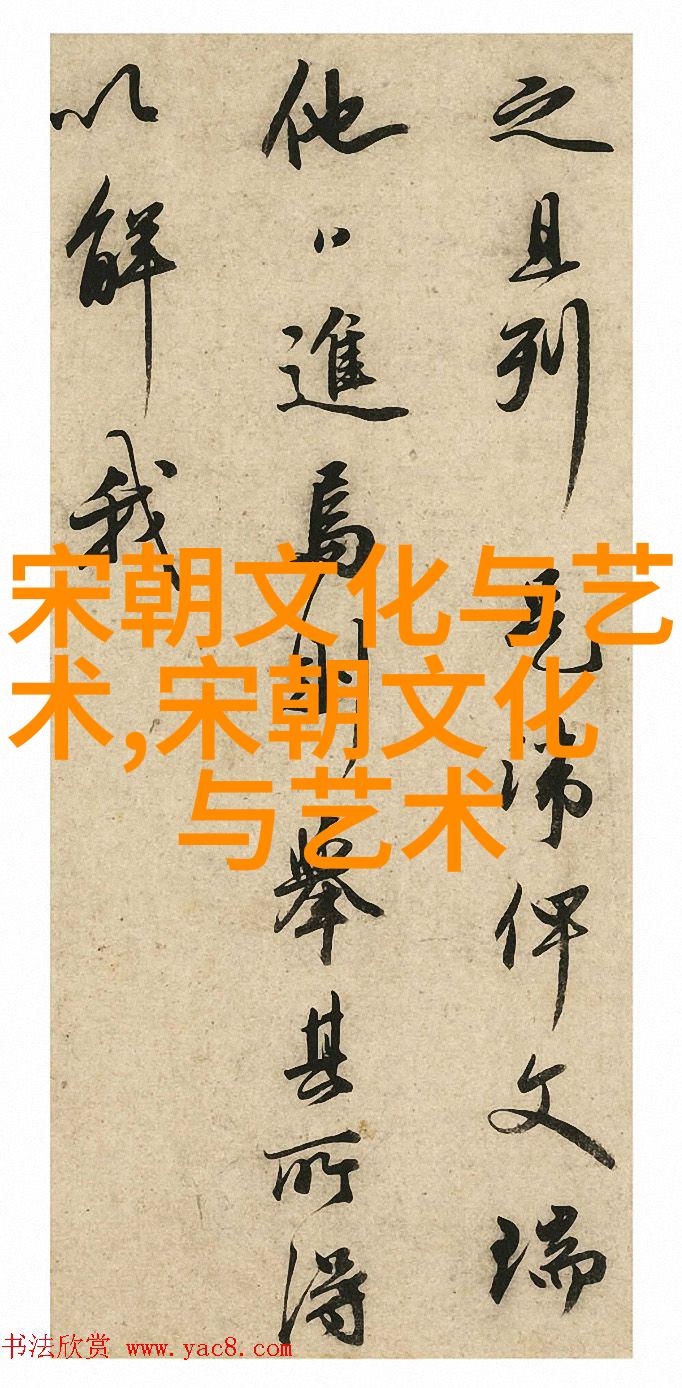 之且列
俾文瑞
他〻進
舉其所得
以解我
宋朝文化与艺
术,宋朝文化
与艺术
书法欣赏 www.yac8.com